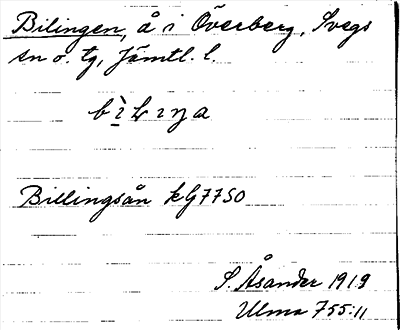 Bilingen, å i Överberg, Svegs
sn o. tg, Jämtl. l.
Billingsån kG7750
S. Åsander 1919
Ulma 755:11